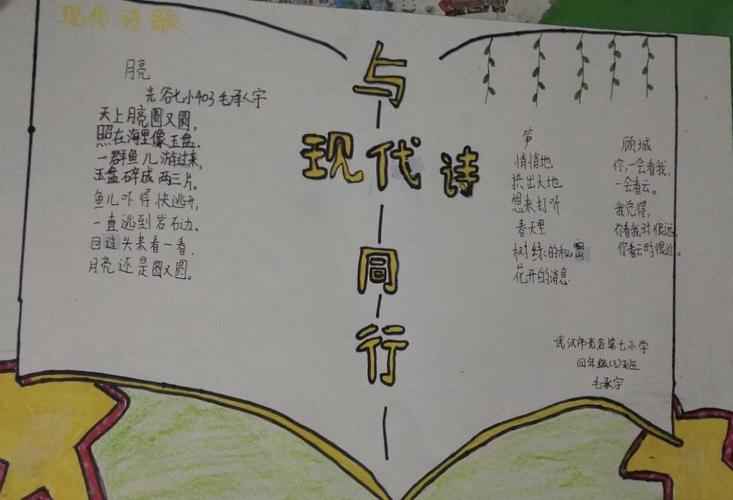 现代诗歌
月亮
光谷七小403毛承宇
天上月亮圆又圆,
照在海里像玉盘。
一群鱼儿游过来,
玉盘碎成两三片。
鱼儿吓得快逃开,
一直逃到岩石边。
回过头来看一看,
月亮还是圆又圆。
与
现代诗
同
行
笋
悄悄地
拱出大地
想来打听
春天里
树绿的秘密
花开的消息
顾城
你,一会看我,
一会看云。
我觉得,
你看我时很远
你看云时很近。
武汉市光谷第七小学
四年级(3)班
毛承宇